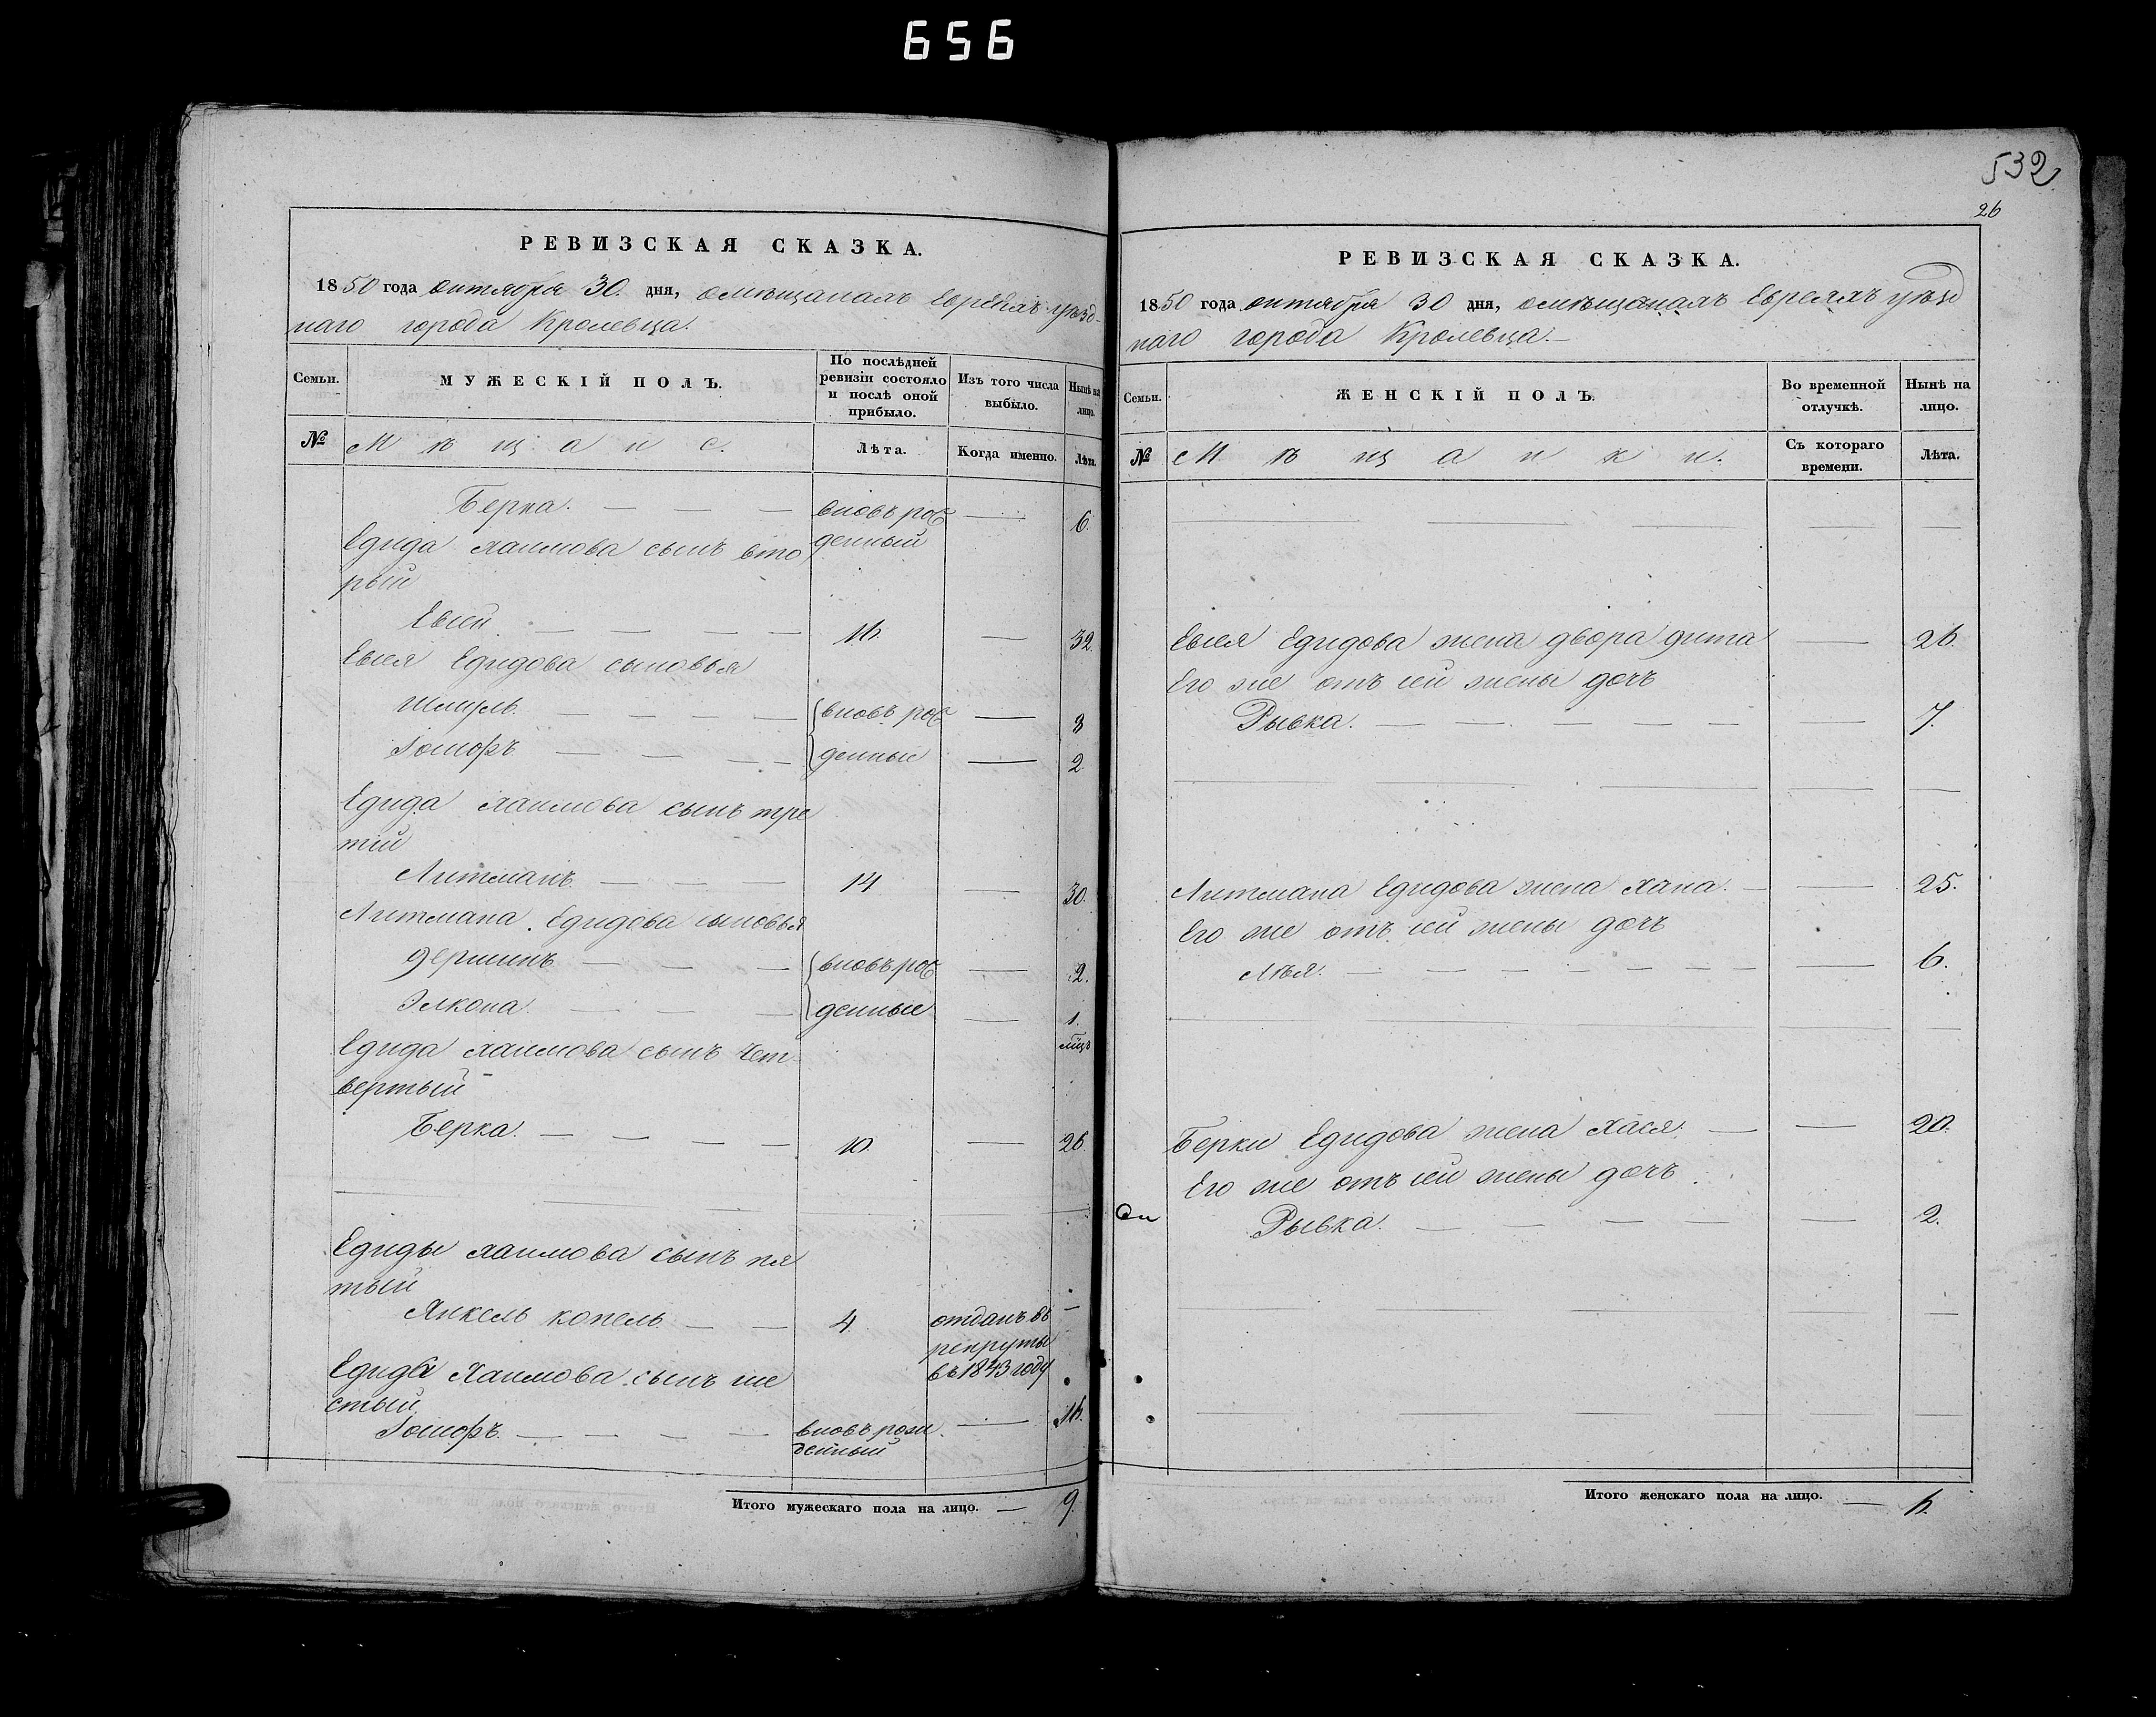 656
РЕВИЗСКАЯ СКАЗКА.
1850 года октября 30. дня, омѣщанахъ Евреяхъ уѣзд-
наго города Кролевца.
Семьи.
МУЖЕСКІЙ ПОЛЪ.
По послѣдней ревизіи состояло и послѣ оной прибыло.
Изъ того числа выбыло.
Нынѣ на лицо.
№
Мѣщане.
Лѣта.
Когда именно.
Лѣта.
Берка. — — — вновь рож — 6.
Едида Хаимова сынъ вто денный
рый
Евсей — — — — 16. — 32.
Евсея Едидова сыновья
Шмуль. — — — — вновь рож — 3
Іосифъ — — — — денные — 2.
Едида Хаимова сынъ тре
тій
Литманъ. — — — 14 — 30.
Литмана Едидова сыновья
Гершинъ — — — вновь рож — 2.
Элкона. — — — денные — 1.
мѣцъ
Едида Хаимова сынъ чет-
вертый
Берка. — — — — 10. — 26.
Едиды Хаимова сынъ пя
тый
Янкель копель — — 4. отданъ въ —
рекруты
въ 1843 году
Едида Хаимова сынъ ше
стый.
Іосифъ. — — — — вновь рож — 16.
денный
Итого мужескаго пола на лицо. — 9.
532
26
РЕВИЗСКАЯ СКАЗКА.
1850 года октября 30 дня, омѣщанахъ Евреяхъ уѣзд
наго города Кролевца.—
Семьи.
ЖЕНСКІЙ ПОЛЪ.
Во временной отлучкѣ.
Нынѣ на лицо.
№
Мѣщанки.
Съ котораго времени.
Лѣта.
Евсея Едидова жена двора дита — 26.
Его же отъ сей жены дочь
Рывка. — — — — — — 7.
Литмана Едидова жена Хана. — — 25.
Его же отъ сей жены дочь
Лѣя. — — — — — — — 6.
Берки Едидова жена Хася. — — 20.
Его же отъ сей жены дочь
Рывка. — — — — — 2.
Итого женскаго пола на лицо. — 6.